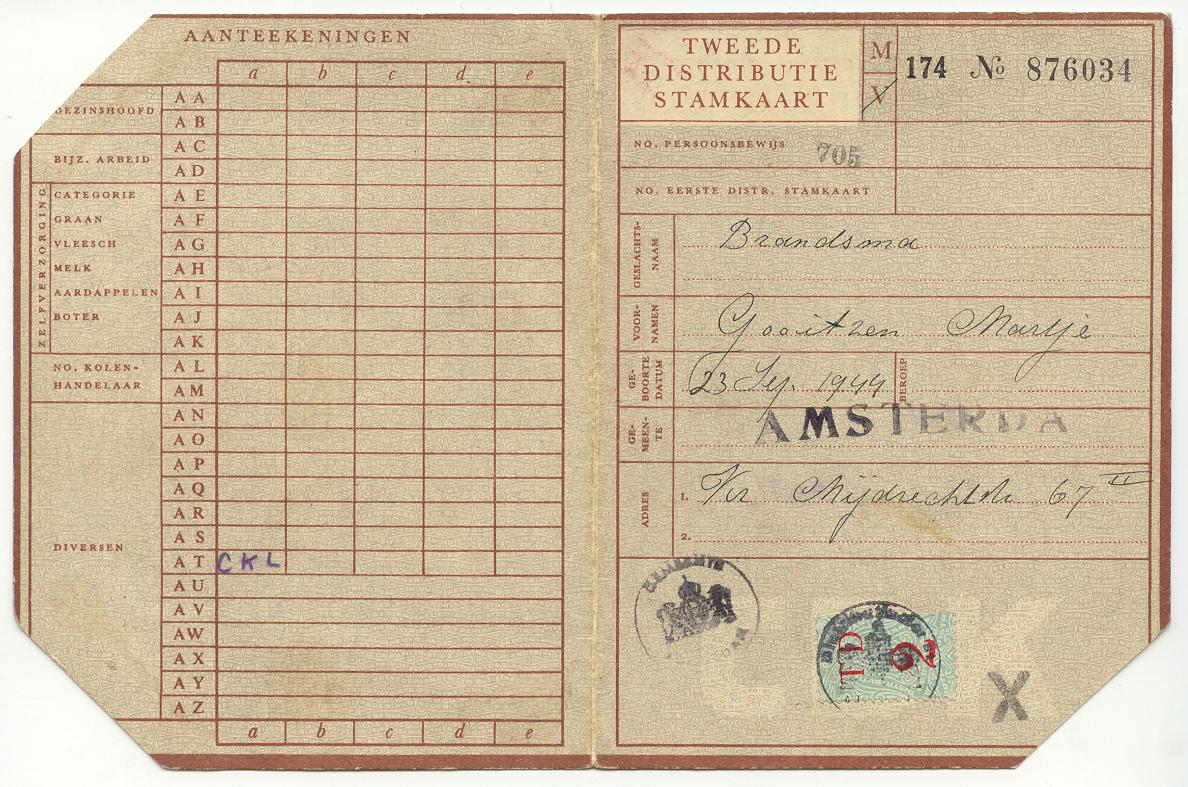 AANTEEKENINGEN
a b c d. e
GEZINSHOOFD
BIJZ. ARBEID
ZELFVERZORGING
CATEGORIE
GRAAN
VLEESCH
MELK
AARDAPPELEN
BOTER
NO. KOLEN-
HANDELAAR
DIVERSEN
A A
A B
A C
A D
A E
A F
A G
A H
A I
A J
A K
A L
A M
A N
A O
A P
A Q
A R
A S
A T CKL
A U
A V
A W
A X
A Y
A Z
a b c d e
TWEEDE
DISTRIBUTIE
STAMKAART
M
V
174 № 876034
NO. PERSOONSBEWIJS 705
NO. EERSTE DISTR. STAMKAART
GESLACHTS-
NAAM
Brandsma
VOOR-
NAMEN
Gooitzen Martje
GE-
BOORTE
DATUM
23 Sep. 1944
BEROEP
GE-
MEEN-
TE
AMSTERDA
ADRES
1. Mijdrechtstr 67 II
2.
GEMEENTE
TD
2
X